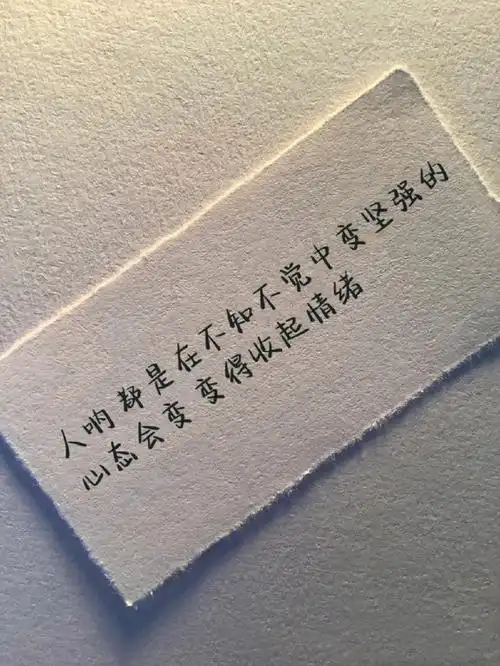 人呐都是在不知不觉中变坚强的
心态会变 变得收起情绪